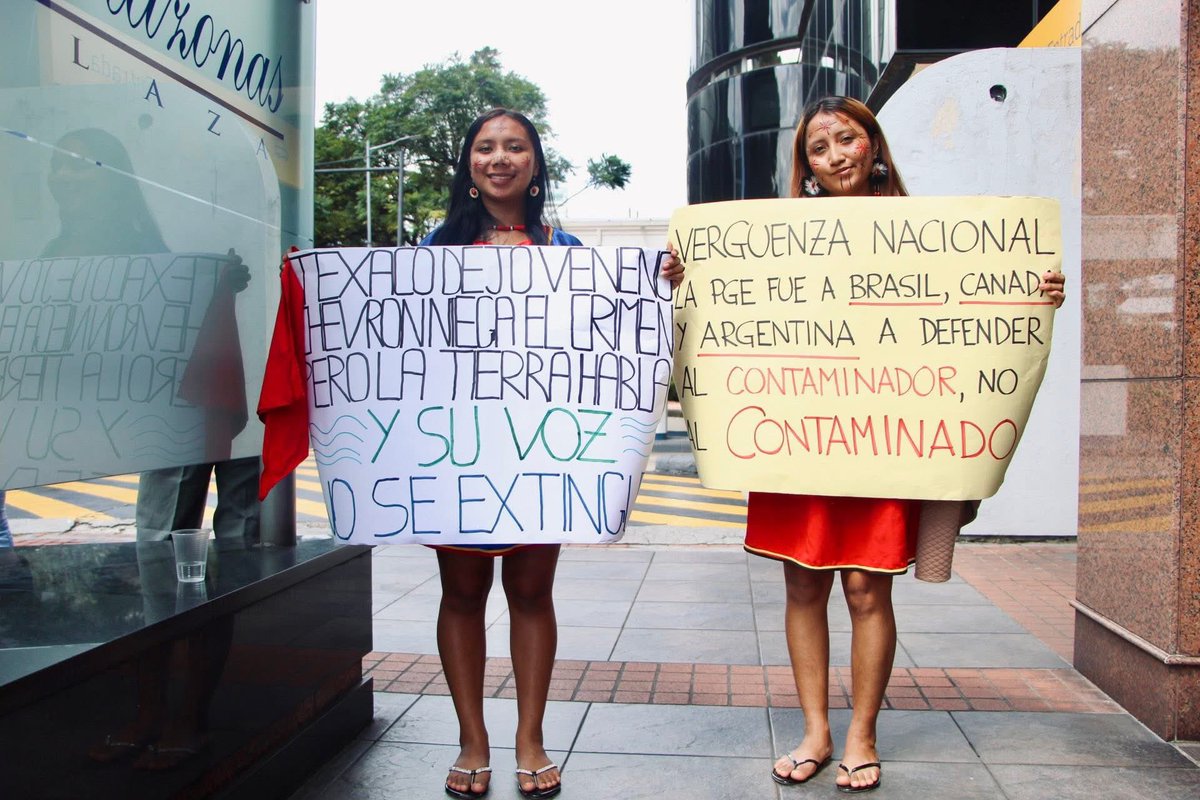 azonas
LAZA
TEXACO DEJO VENENO
CHEVRON NIEGA EL CRIMEN
PERO LA TIERRA HABLA
Y SU VOZ
NO SE EXTING
VERGUENZA NACIONAL
LA PGE FUE A BRASIL, CANAD
Y ARGENTINA A DEFENDER
AL CONTAMINADOR, NO
AL CONTAMINADO
Entrad